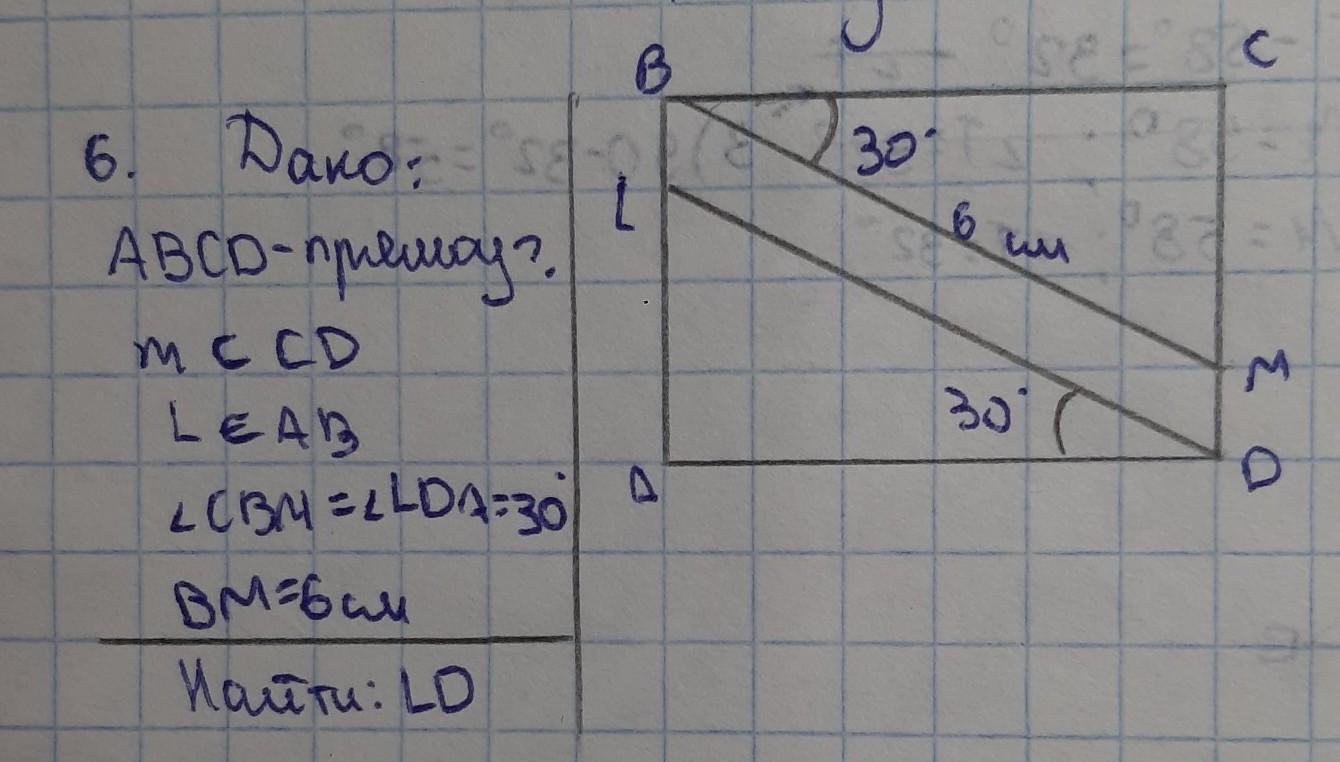 6. Дано:
ABCD-прямоуг.
m C CD
L ∈ AB
∠CBM=∠LDA=30°
BM=6 см
Найти: LD
B
C
30°
L
6 см
M
30°
A
D